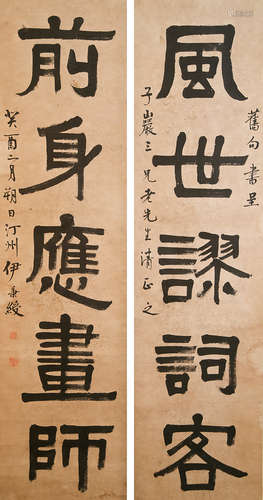 舊句書呈
風世謬詞客
子巖三兄老先生清正之
前身應畫師
癸酉二月朔日汀州伊秉綬